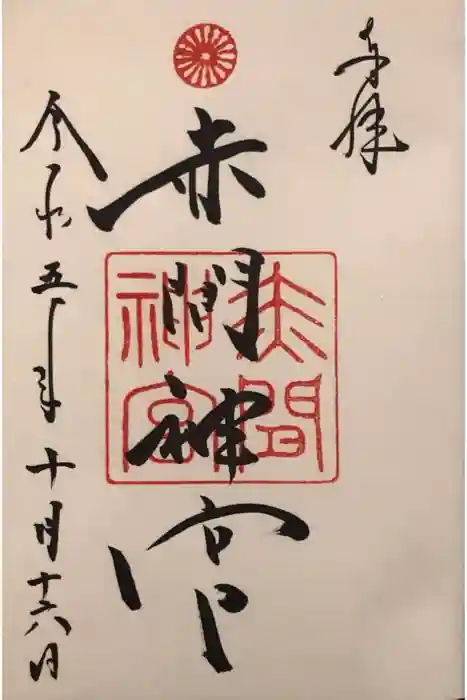 奉拝
赤間神宮
赤間神宮
令和五年十月十六日